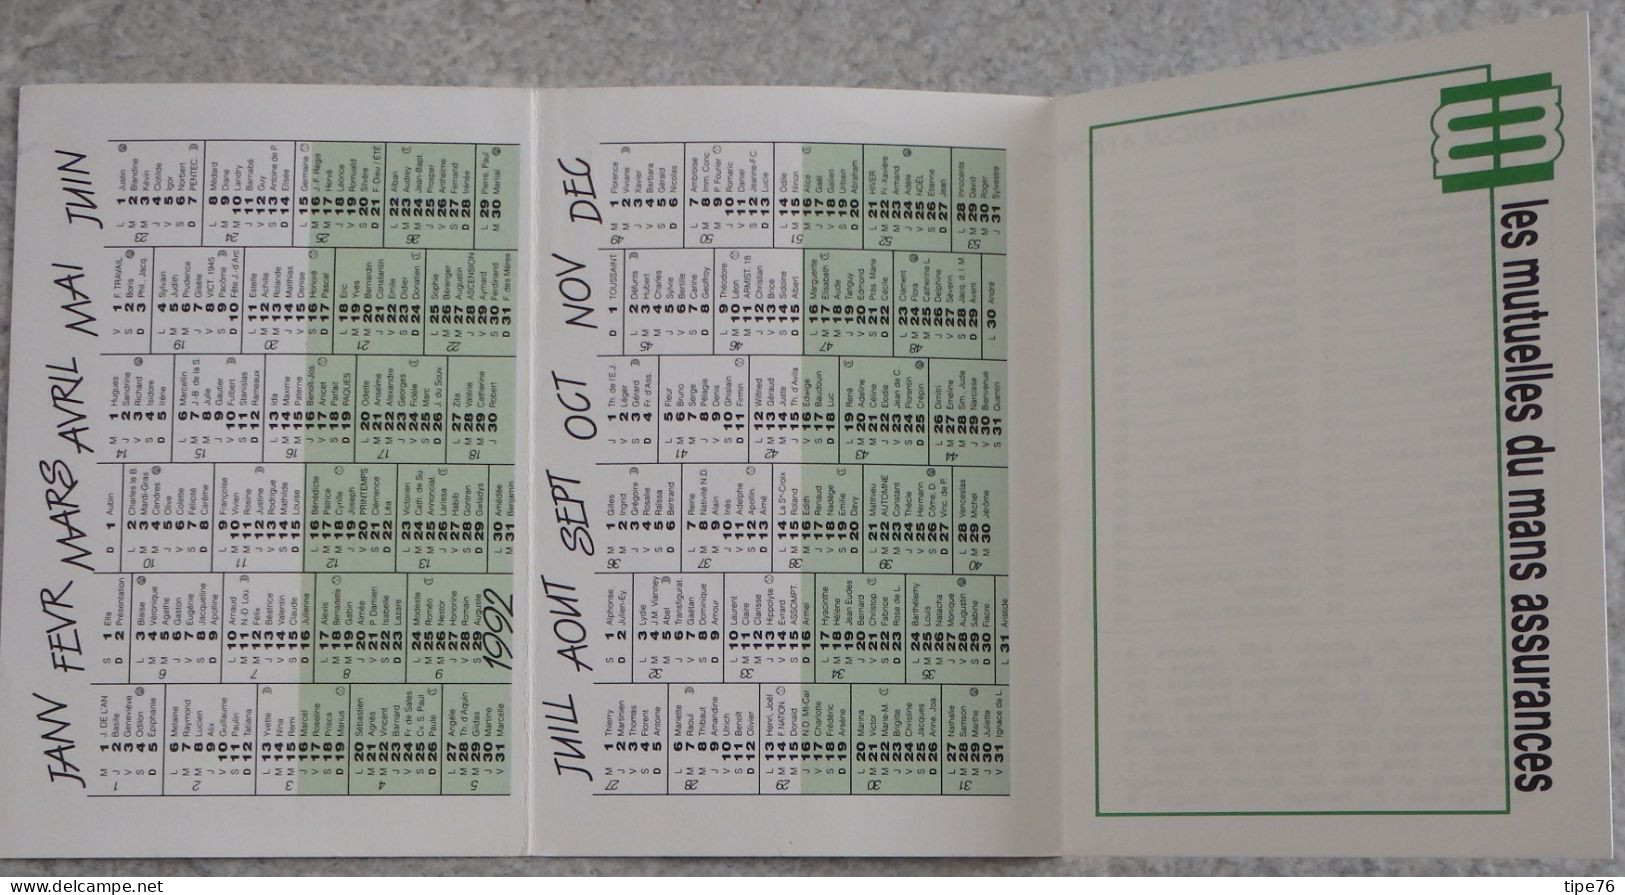 JANV FEVR MARS AVRIL MAI JUIN
M 1 J. DE L'AN
J 2 Basile
V 3 Geneviève
S 4 Odilon
D 5 Epiphanie
L 6 Melaine
M 7 Raymond
M 8 Lucien
J 9 Alix
V 10 Guillaume
S 11 Paulin
D 12 Tatiana
L 13 Yvette
M 14 Nina
M 15 Remi
J 16 Marcel
V 17 Roseline
S 18 Prisca
D 19 Marius
L 20 Sébastien
M 21 Agnès
M 22 Vincent
J 23 Barnard
V 24 Fr. de Sales
S 25 Cv. S. Paul
D 26 Paule
L 27 Angèle
M 28 Th. d'Aquin
M 29 Gildas
J 30 Martine
V 31 Marcelle
S 1 Ella
D 2 Présentation
L 3 Blaise
M 4 Véronique
M 5 Agathe
J 6 Gaston
V 7 Eugénie
S 8 Jacqueline
D 9 Apolline
L 10 Arnaud
M 11 N.-D. Lou.
M 12 Félix
J 13 Béatrice
V 14 Valentin
S 15 Claude
D 16 Julienne
L 17 Alexis
M 18 Bernadette
M 19 Gabin
J 20 Aimée
V 21 P. Damien
S 22 Isabelle
D 23 Lazare
L 24 Modeste
M 25 Roméo
M 26 Nestor
J 27 Honorine
V 28 Romain
S 29 Auguste
1992
D 1 Aubin
L 2 Charles le B.
M 3 Mardi-Gras
M 4 Cendres
J 5 Olive
V 6 Colette
S 7 Félicité
D 8 Carême
L 9 Françoise
M 10 Vivien
M 11 Rosine
J 12 Justine
V 13 Rodrigue
S 14 Mathilde
D 15 Louise
L 16 Bénédicte
M 17 Patrice
M 18 Cyrille
J 19 Joseph
V 20 PRINTEMPS
S 21 Clémence
D 22 Léa
L 23 Victorien
M 24 Cath. de Su.
M 25 Annonciat.
J 26 Larissa
V 27 Habib
S 28 Gontran
D 29 Gwladys
L 30 Amédée
M 31 Benjamin
M 1 Hugues
J 2 Sandrine
V 3 Richard
S 4 Isidore
D 5 Irène
L 6 Marcellin
M 7 J.-B. de la S.
M 8 Julie
J 9 Gautier
V 10 Fulbert
S 11 Stanislas
D 12 Rameaux
L 13 Ida
M 14 Maxime
M 15 Paterne
J 16 Benoît-Jos.
V 17 Anicet
S 18 Parfait
D 19 PAQUES
L 20 Odette
M 21 Anselme
M 22 Alexandre
J 23 Georges
V 24 Fidèle
S 25 Marc
D 26 J. du Souv.
L 27 Zita
M 28 Valérie
M 29 Catherine
J 30 Robert
V 1 F. TRAVAIL
S 2 Boris
D 3 Phil., Jacq.
L 4 Sylvain
M 5 Judith
M 6 Prudence
J 7 Gisèle
V 8 VICT. 1945
S 9 Pacôme
D 10 Fête J.-d'Arc
L 11 Estelle
M 12 Achille
M 13 Rolande
J 14 Matthias
V 15 Denise
S 16 Honoré
D 17 Pascal
L 18 Eric
M 19 Yves
M 20 Bernardin
J 21 Constantin
V 22 Emile
S 23 Didier
D 24 Donatien
L 25 Sophie
M 26 Bérenger
M 27 Augustin
J 28 ASCENSION
V 29 Aymard
S 30 Ferdinand
D 31 F. des Mères
L 1 Justin
M 2 Blandine
M 3 Kévin
J 4 Clotilde
V 5 Igor
S 6 Norbert
D 7 PENTEC.
L 8 Médard
M 9 Diane
M 10 Landry
J 11 Barnabé
V 12 Guy
S 13 Antoine de P.
D 14 Elisée
L 15 Germaine
M 16 J.-F. Régis
M 17 Hervé
J 18 Léonce
V 19 Romuald
S 20 Silvère
D 21 F.-Dieu / ÉTÉ
L 22 Alban
M 23 Audrey
M 24 Jean-Bapt.
J 25 Prosper
V 26 Anthelme
S 27 Fernand
D 28 Irénée
L 29 Pierre, Paul
M 30 Martial
JUILL AOUT SEPT OCT NOV DEC
M 1 Thierry
J 2 Martinien
V 3 Thomas
S 4 Florent
D 5 Antoine
L 6 Mariette
M 7 Raoul
M 8 Thibaut
J 9 Amandine
V 10 Ulrich
S 11 Benoît
D 12 Olivier
L 13 Henri, Joël
M 14 F. NATION.
M 15 Donald
J 16 N.D. Mt-Car.
V 17 Charlotte
S 18 Frédéric
D 19 Arsène
L 20 Marina
M 21 Victor
M 22 Marie-M.
J 23 Brigitte
V 24 Christine
S 25 Jacques
D 26 Anne, Joa.
L 27 Nathalie
M 28 Samson
M 29 Marthe
J 30 Juliette
V 31 Ignace de L.
S 1 Alphonse
D 2 Julien-Ey.
L 3 Lydie
M 4 J.M. Vianney
M 5 Abel
J 6 Transfigurat.
V 7 Gaétan
S 8 Dominique
D 9 Amour
L 10 Laurent
M 11 Claire
M 12 Clarisse
J 13 Hippolyte
V 14 Evrard
S 15 ASSOMPT.
D 16 Armel
L 17 Hyacinthe
M 18 Hélène
M 19 Jean Eudes
J 20 Bernard
V 21 Christop.
S 22 Fabrice
D 23 Rose de L.
L 24 Barthélemy
M 25 Louis
M 26 Natacha
J 27 Monique
V 28 Augustin
S 29 Sabine
D 30 Fiacre
L 31 Aristide
M 1 Gilles
M 2 Ingrid
J 3 Grégoire
V 4 Rosalie
S 5 Raïssa
D 6 Bertrand
L 7 Reine
M 8 Nativité N.D.
M 9 Alain
J 10 Inès
V 11 Adelphe
S 12 Apollin.
D 13 Aimé
L 14 La Ste-Croix
M 15 Roland
M 16 Edith
J 17 Renaud
V 18 Nadège
S 19 Emilie
D 20 Davy
L 21 Matthieu
M 22 AUTOMNE
M 23 Constant
J 24 Thècle
V 25 Hermann
S 26 Côme, D.
D 27 Vinc. de P.
L 28 Venceslas
M 29 Michel
M 30 Jérôme
J 1 Th. de l'E.J.
V 2 Léger
S 3 Gérard
D 4 Fr. d'Ass.
L 5 Fleur
M 6 Bruno
M 7 Serge
J 8 Pélagie
V 9 Denis
S 10 Ghislain
D 11 Firmin
L 12 Wilfried
M 13 Géraud
M 14 Juste
J 15 Th. d'Avila
V 16 Edwige
S 17 Baudouin
D 18 Luc
L 19 René
M 20 Adeline
M 21 Céline
J 22 Elodie
V 23 Jean de C.
S 24 Florentin
D 25 Crépin
L 26 Dimitri
M 27 Emeline
M 28 Sim., Jude
J 29 Narcisse
V 30 Bienvenue
S 31 Quentin
D 1 TOUSSAINT
L 2 Défunts
M 3 Hubert
M 4 Charles
J 5 Sylvie
V 6 Bertille
S 7 Carine
D 8 Geoffroy
L 9 Théodore
M 10 Léon
M 11 ARMIST. 18
J 12 Christian
V 13 Brice
S 14 Sidoine
D 15 Albert
L 16 Marguerite
M 17 Elisabeth
M 18 Aude
J 19 Tanguy
V 20 Edmond
S 21 Prés. Marie
D 22 Cécile
L 23 Clément
M 24 Flora
M 25 Catherine L.
J 26 Delphine
V 27 Séverin
S 28 Jacq. d. l. M.
D 29 Avent
L 30 André
M 1 Florence
M 2 Viviane
J 3 Xavier
V 4 Barbara
S 5 Gérald
D 6 Nicolas
L 7 Ambroise
M 8 Imm. Conc.
M 9 P. Fourier
J 10 Romaric
V 11 Daniel
S 12 Jeanne-F.C.
D 13 Lucie
L 14 Odile
M 15 Ninon
M 16 Alice
J 17 Gaël
V 18 Gatien
S 19 Urbain
D 20 Abraham
L 21 HIVER
M 22 Fr.-Xavière
M 23 Armand
J 24 Adèle
V 25 NOËL
S 26 Etienne
D 27 Jean
L 28 Innocents
M 29 David
M 30 Roger
J 31 Sylvestre
les mutuelles du mans assurances
https://www.delcampe.net
tipe76